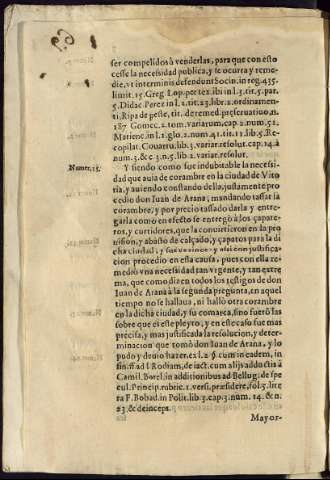 ser compelidos à venderlas, para que con esto
cesse la necessidad publica, y se ocurra y reme-
die, vt interminis defendunt Socin. in reg. 435.
limit. 15. Greg. Lop. per tex. ibi in l. 3. tit. 5. par.
5. Didac. Perez in l. 2. tit. 23. lib. 2. ordinamen-
ti. Ripa de peste, tit. de remed. preseruation. n.
187 Gomec. 2. tom. variarum, cap. 2. num. 51.
Matienc. in l. 1. glo. 2. num. 4. tit. 11. lib. 5. Re-
copilat. Couarru. lib. 3. variar. resolut. cap. 14. à
num. 3. & c 3. n. 5. lib. variar. resolut.
Numer. 15.
Y siendo como fue indubitable la necessi-
dad que auia de corambre en la ciudad de Vito-
ria, y auiendo constando dello, justamente pro
cedio don Iuan de Arana, mandando tassar la
corambre, y por precio tassado darla y entre-
garla como en efeto se entregò à los çapate-
ros, y curtidores, que la conuirtieron en la pro
uision, y abasto de calçado, y çapatos para la di
cha ciudad, y sus vezinos y assi con justifica-
cion procedio en esta causa, pues con ella re-
mediò vna necessidad tan vigente, y tan estre
ma, que como dizen todos los testigos de don
Iuan de Arana à la segunda pregunta, en aquel
tiempo no se hallaua, ni hallò otra corambre
en la dicha ciudad, y su comarca, sino fuerò las
sobre que es este pleyto, y en este caso fue mas
precisa, y mas justificada la resolucion, y deter-
minacion que tomò don Iuan de Arana, y lo
pudo y deuio hazer, ex l. 2. §. cum in eadem, in
fin. ff. ad l. Rodiam, de iact. cum alijs adductis à
Camil. Borel. in additionibus ad Bellug. de spe
cul. Princip. rubric. 1. versi. præsidere, fol. 5. lite
ra F. Bobad. in Polit. lib. 3. cap. 3. num. 14. & n.
23. & deinceps.
Mayor-